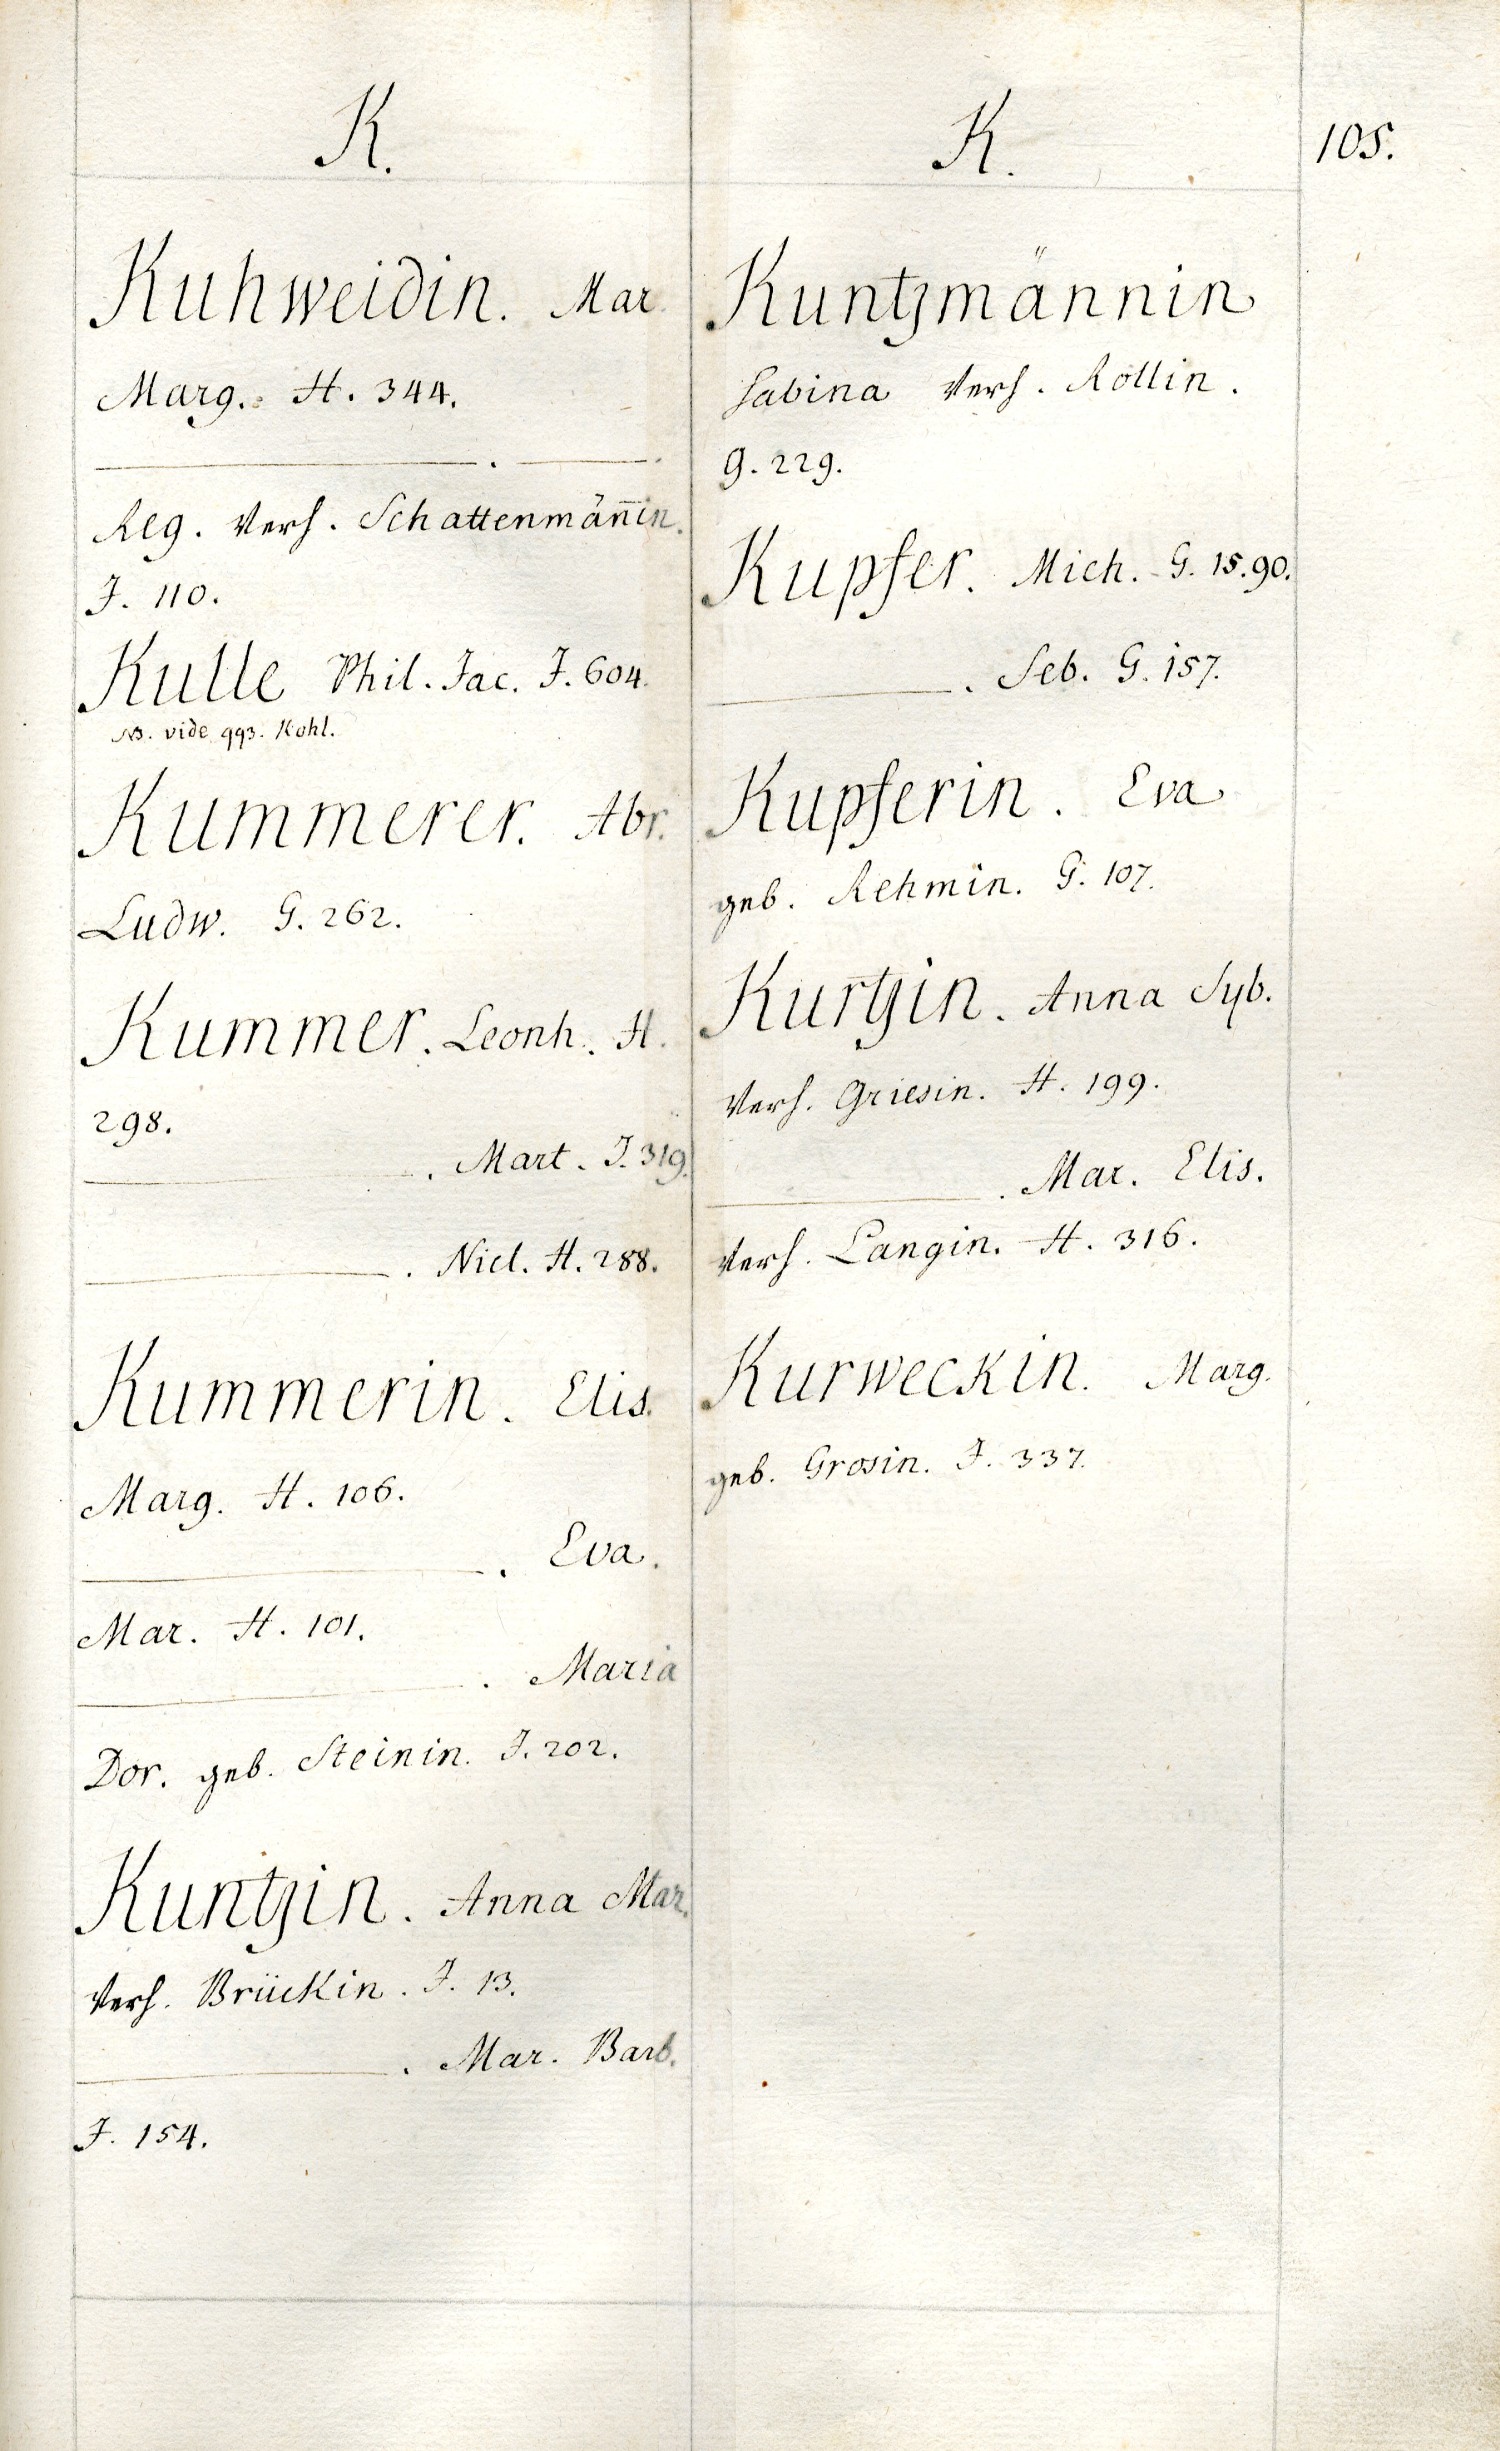 K.
Kuhweidin. Mar.
Marg. H. 344.
———. ———.
Reg. Verh. Schattenmän̄in.
J. 110.
Kulle Phil. Jac. J. 604.
NB. vide 993. Kohl.
Kummerer. Abr.
Ludw. G. 262.
Kummer. Leonh. H.
298.
———. Mart. J. 319.
———. Nicl. H. 288.
Kummerin. Elis.
Marg. H. 106.
———. Eva.
Mar. H. 101.
———. Maria
Dor. geb. Steinin. J. 202.
Kuntzin. Anna Mar.
Verh. Brückin. J. 13.
———. Mar. Barb.
J. 154.
K.
105.
Kuntzmännin
Sabina Verh. Röllin.
G. 229.
Kupfer. Mich. G. 15. 90.
———. Seb. G. 157.
Kupferin. Eva
geb. Rehmin. G. 107.
Kurtzin. Anna Syb.
Verh. Griesin. H. 199.
———. Mar. Elis.
Verh. Langin. H. 316.
Kurweckin. Marg.
geb. Grosin. J. 337.